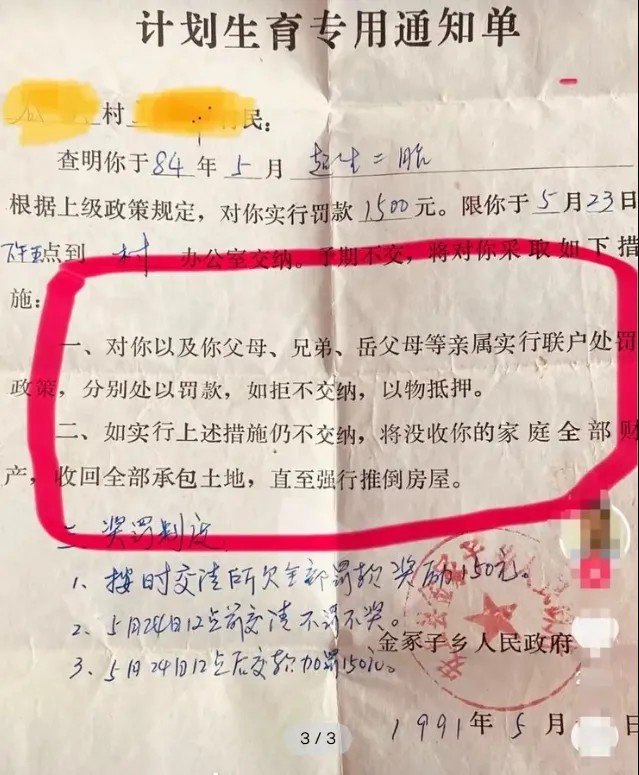 计划生育专用通知单
村 民:
查明你于84年5月 超生二胎
根据上级政策规定，对你实行罚款1500元。限你于5月23日
下午 点到 村 办公室交纳。予期不交，将对你采取如下措
施:
一、对你以及你父母、兄弟、岳父母等亲属实行联户处罚
政策，分别处以罚款，如拒不交纳，以物抵押。
二、如实行上述措施仍不交纳，将没收你的家庭全部财
产，收回全部承包土地，直至强行推倒房屋。
三 奖罚制度
1、按时交清所欠全部罚款奖励150元。
2、5月24日12点前交清不罚不奖。
3、5月24日12点后交款加罚150元。
金冢子乡人民政府
1991年5月 日
3/3